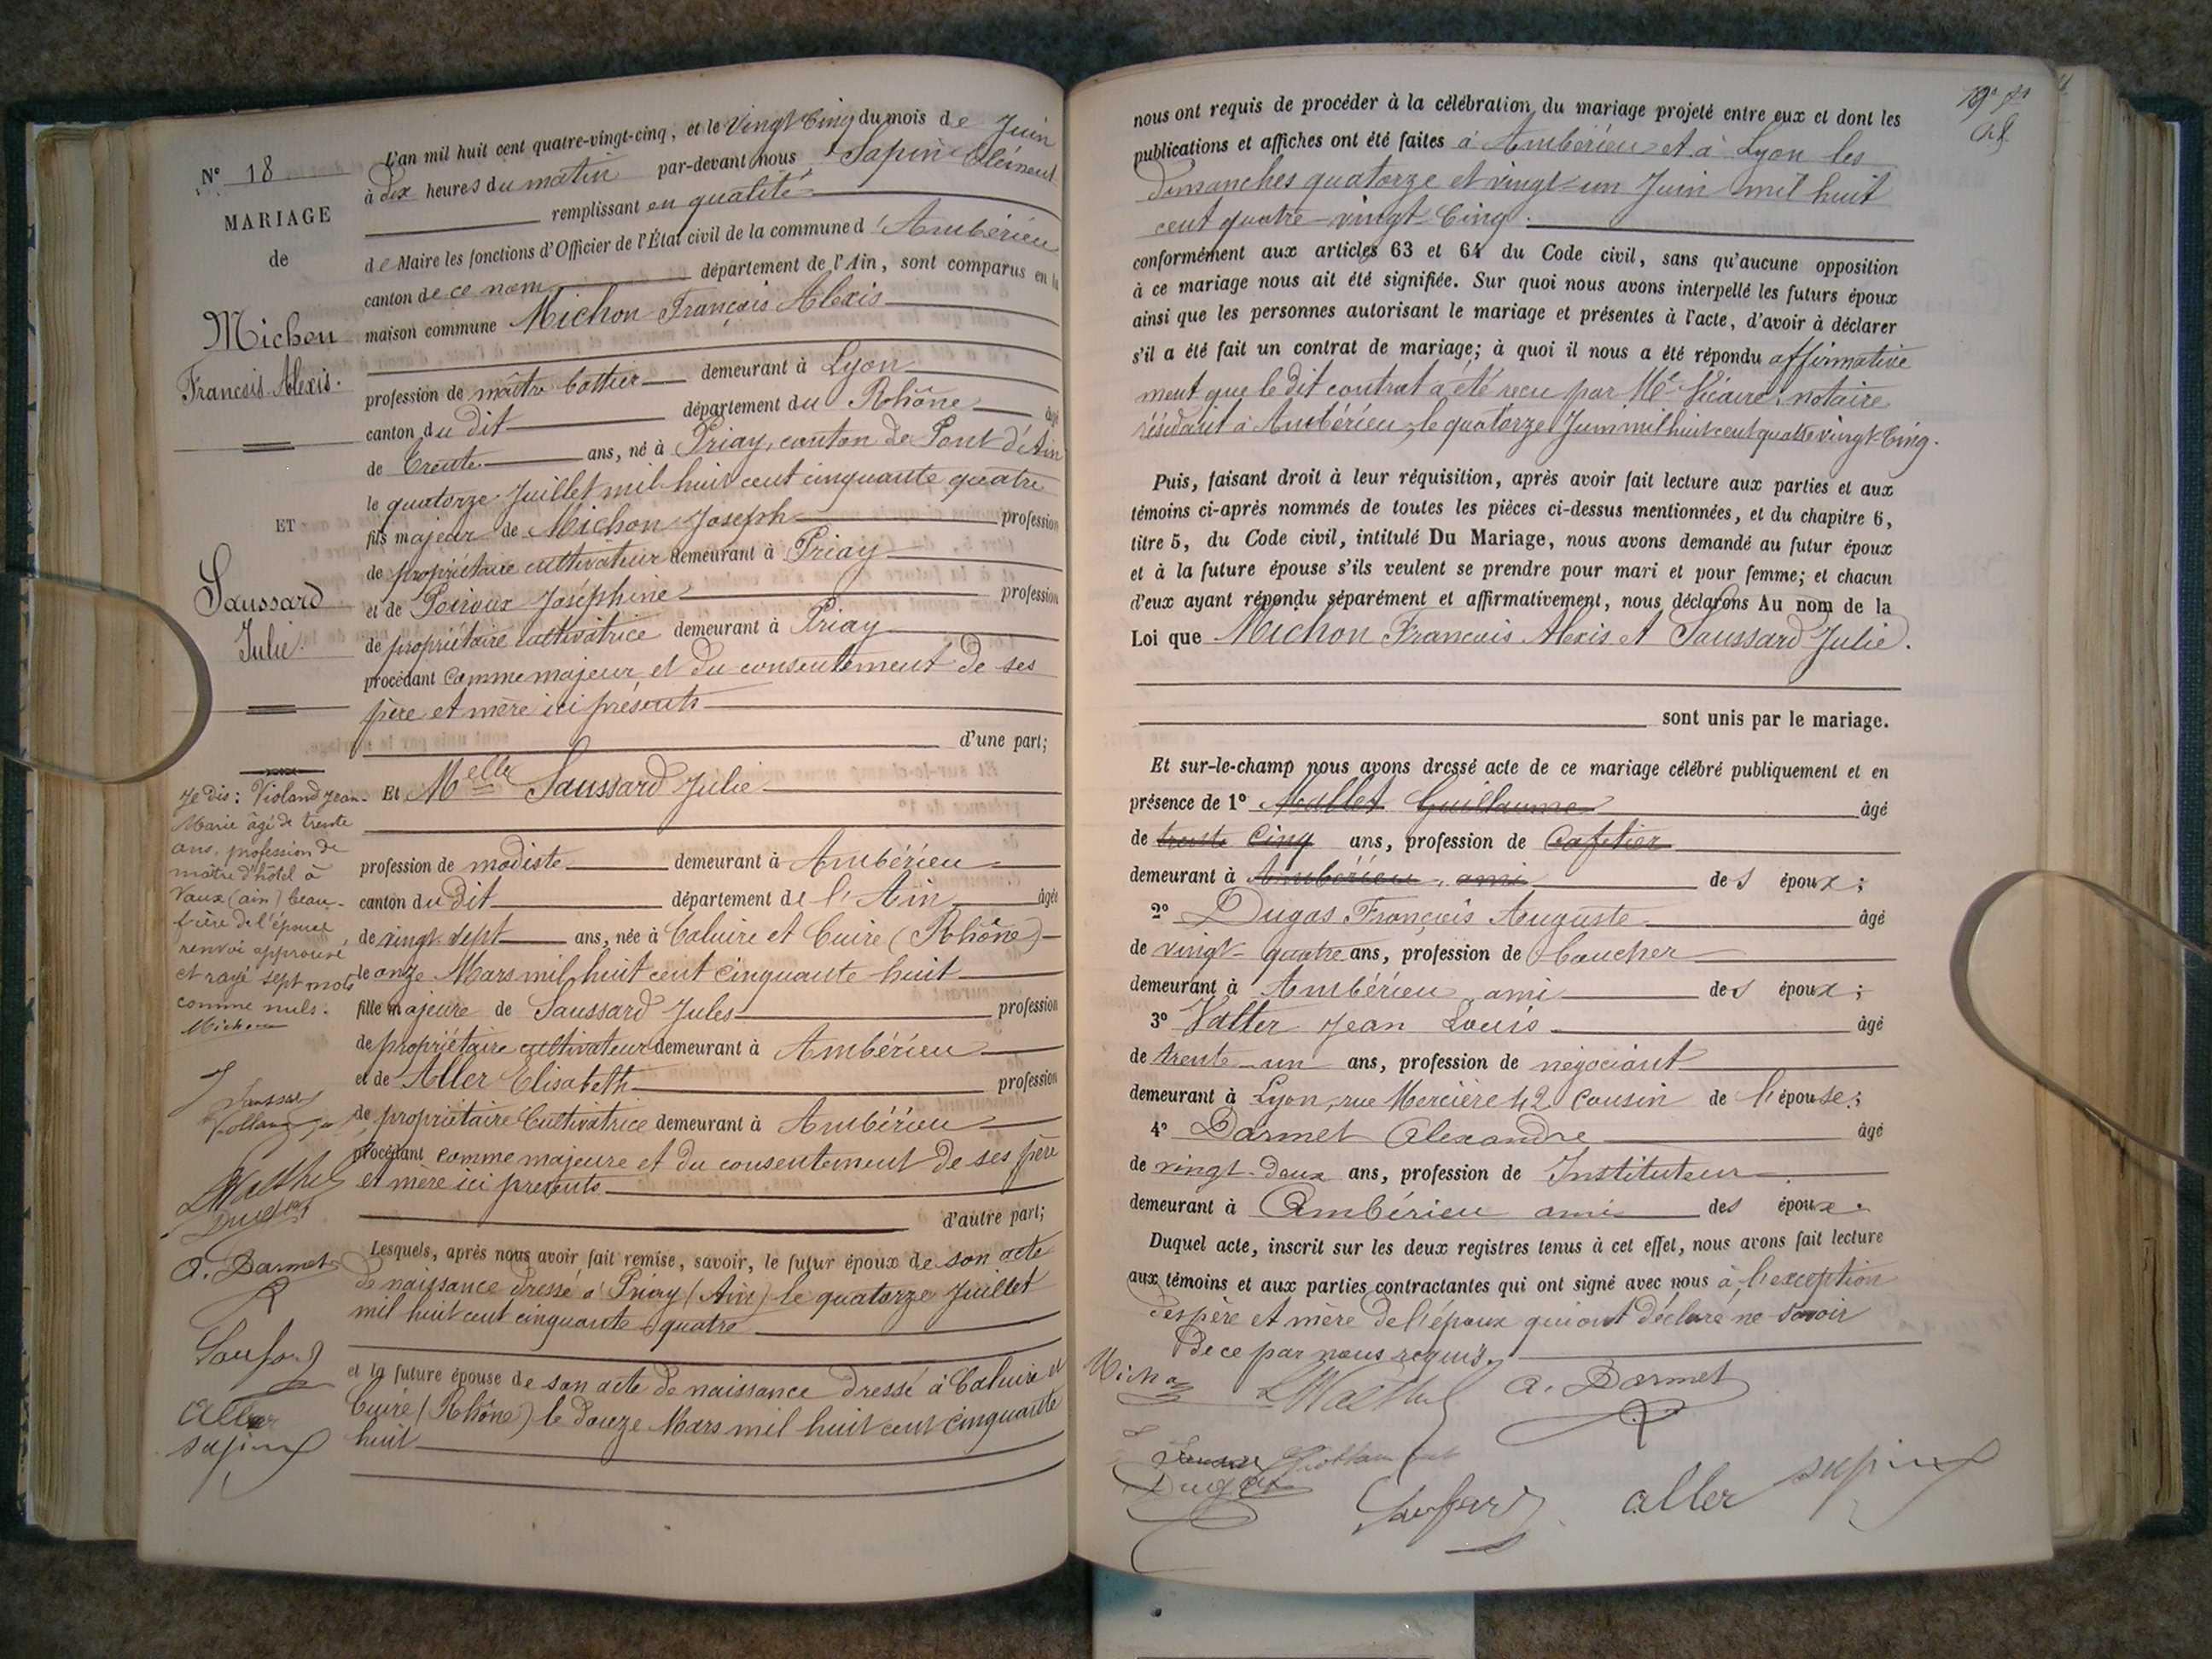 N° 18
MARIAGE
de
Michon
François Alexis.
ET
Saussard
Julie.
Je dis: Violand Jean-
Marie âgé de trente
ans, profession de
maître d'hôtel à
Vaux (ain) beau-
frère de l'épouse
renvoi approuvé
et rayé sept mots
comme nuls.
Michon
A. Darmet
Aller
Sapin
L'an mil huit cent quatre-vingt-cinq, et le Vingt Cinq du mois de Juin
à dix heures du matin par-devant nous Sapin Clément
remplissant en qualité
de Maire les fonctions d'Officier de l'État civil de la commune d'Ambérieu
canton de ce nom département de l'Ain, sont comparus en la
maison commune Michon François Alexis
profession de maître bottier demeurant à Lyon
canton du dit département du Rhône âgé
de trente ans, né à Priay, canton de Pont d'Ain
le quatorze Juillet mil huit cent cinquante quatre
fils majeur de Michon Joseph profession
de propriétaire cultivateur demeurant à Priay
et de Joséphine profession
de propriétaire cultivatrice demeurant à Priay
procédant comme majeur et du consentement de ses
père et mère ici présents
d'une part;
Et Melle Saussard Julie
profession de modiste demeurant à Ambérieu
canton du dit département de l'Ain âgée
de vingt sept ans, née à Caluire et Cuire (Rhône)
le onze Mars mil huit cent cinquante huit
fille majeure de Saussard Jules profession
de propriétaire cultivateur demeurant à Ambérieu
et de Aller Elisabeth profession
de propriétaire Cultivatrice demeurant à Ambérieu
procédant comme majeure et du consentement de ses père
et mère ici présents
d'autre part;
Lesquels, après nous avoir fait remise, savoir, le futur époux de son acte
de naissance dressé à Priay (Ain) le quatorze Juillet
mil huit cent cinquante quatre
et la future épouse de son acte de naissance dressé à Caluire et
Cuire (Rhône) le douze Mars mil huit cent cinquante
huit
nous ont requis de procéder à la célébration du mariage projeté entre eux et dont les
publications et affiches ont été faites à Ambérieu et à Lyon les
dimanches quatorze et vingt-un Juin mil huit
cent quatre-vingt Cinq.
conformément aux articles 63 et 64 du Code civil, sans qu'aucune opposition
à ce mariage nous ait été signifiée. Sur quoi nous avons interpellé les futurs époux
ainsi que les personnes autorisant le mariage et présentes à l'acte, d'avoir à déclarer
s'il a été fait un contrat de mariage; à quoi il nous a été répondu affirmative
ment que le dit contrat a été reçu par Me Vicaire, notaire
résidant à Ambérieu, le quatorze Juin mil huit cent quatre vingt Cinq.
Puis, faisant droit à leur réquisition, après avoir fait lecture aux parties et aux
témoins ci-après nommés de toutes les pièces ci-dessus mentionnées, et du chapitre 6,
titre 5, du Code civil, intitulé Du Mariage, nous avons demandé au futur époux
et à la future épouse s'ils veulent se prendre pour mari et pour femme; et chacun
d'eux ayant répondu séparément et affirmativement, nous déclarons Au nom de la
Loi que Michon François Alexis et Saussard Julie.
sont unis par le mariage.
Et sur-le-champ nous avons dressé acte de ce mariage célébré publiquement et en
présence de 1° Mallet Guillaume âgé
de trente cinq ans, profession de Cafetier
demeurant à Ambérieu, ami des époux;
2° Dugas François Auguste âgé
de vingt-quatre ans, profession de boucher
demeurant à Ambérieu ami des époux;
3° Valter Jean Louis âgé
de trente-un ans, profession de négociant
demeurant à Lyon, rue Mercière 42 Cousin de l'épouse;
4° Darmet Alexandre âgé
de vingt-deux ans, profession de Instituteur
demeurant à Ambérieu ami des époux.
Duquel acte, inscrit sur les deux registres tenus à cet effet, nous avons fait lecture
aux témoins et aux parties contractantes qui ont signé avec nous à l'exception
des père et mère de l'époux qui ont déclaré ne savoir
de ce par nous requis.
Michon A. Darmet
Dugas
Saussard Aller Sapin